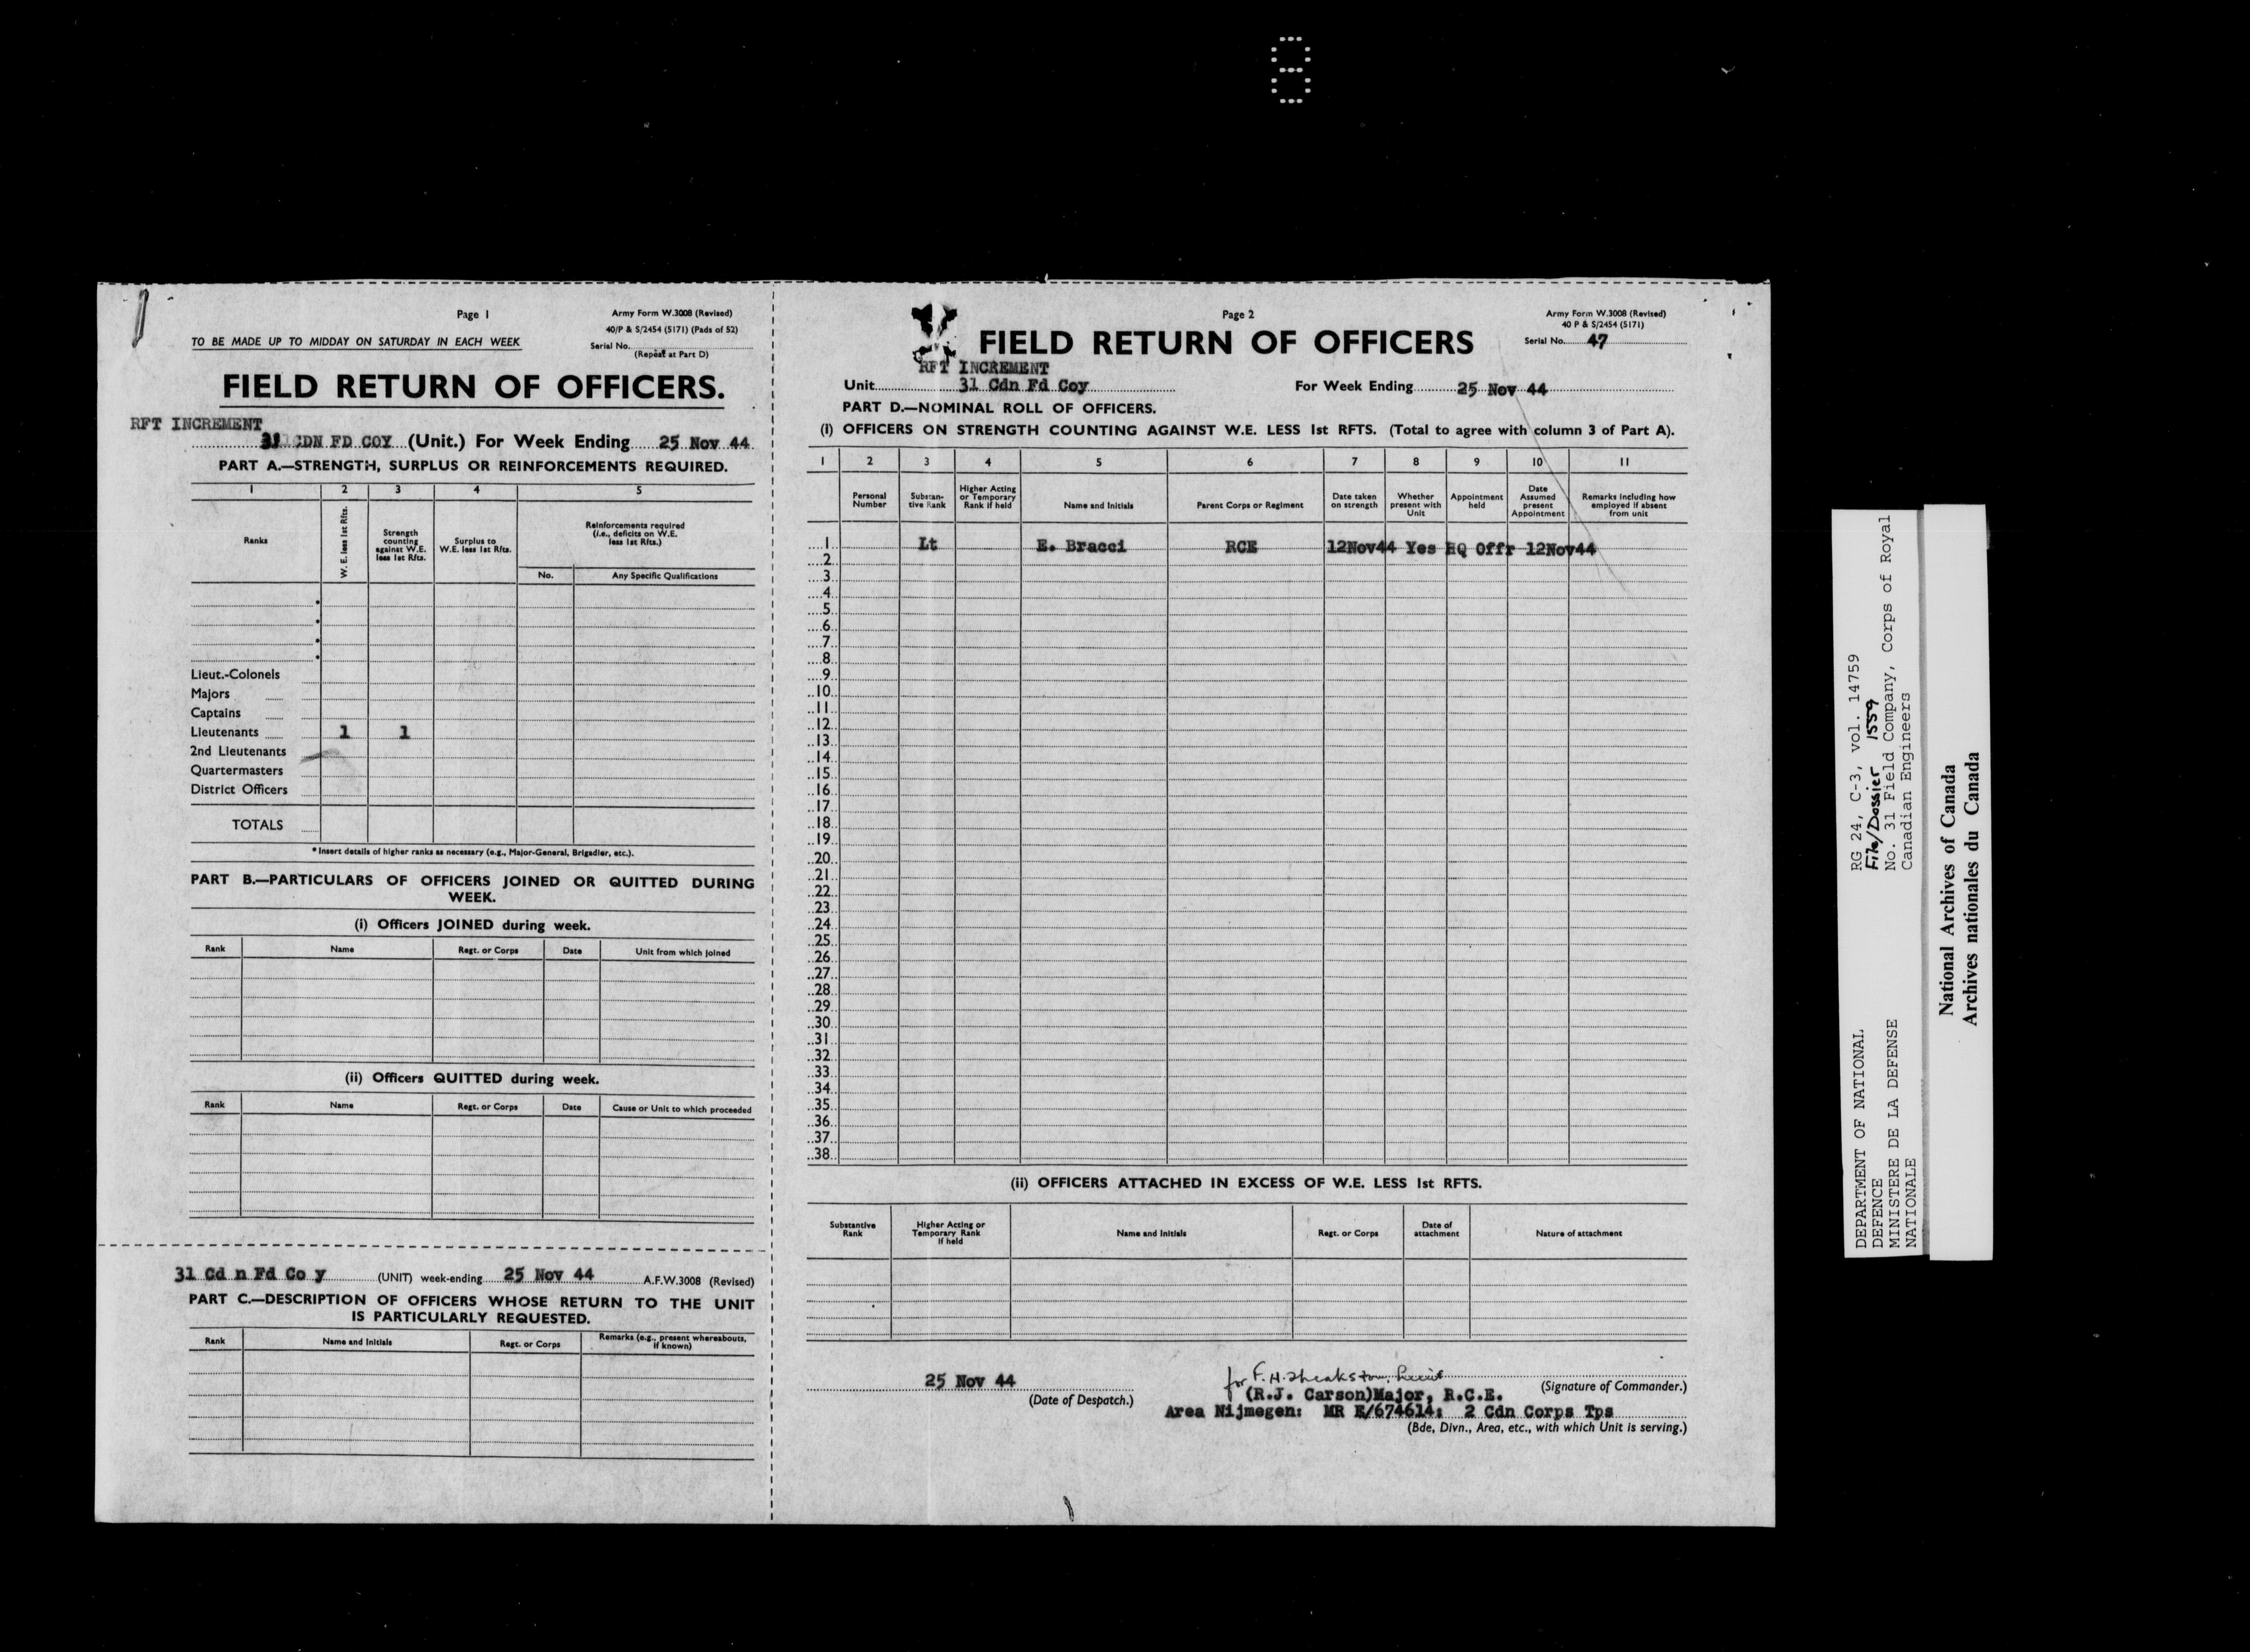 Page 1
Army Form W.3008 (Revised)
40/P & S/2454 (5171) (Pads of 52)
TO BE MADE UP TO MIDDAY ON SATURDAY IN EACH WEEK
Serial No.
(Repeat at Part D)
FIELD RETURN OF OFFICERS.
RFT INCREMENT
31 CDN FD COY (Unit.) For Week Ending 25 Nov 44
PART A.—STRENGTH, SURPLUS OR REINFORCEMENTS REQUIRED.
1 2 3 4 5
Ranks
W. E. less 1st Rfts.
Strength counting against W.E. less 1st Rfts.
Surplus to W.E. less 1st Rfts.
Reinforcements required (i.e., deficits on W.E. less 1st Rfts.)
No. Any Specific Qualifications
Lieut.-Colonels
Majors
Captains
Lieutenants 1 1
2nd Lieutenants
Quartermasters
District Officers
TOTALS
* Insert details of higher ranks as necessary (e.g., Major-General, Brigadier, etc.).
PART B.—PARTICULARS OF OFFICERS JOINED OR QUITTED DURING
WEEK.
(i) Officers JOINED during week.
Rank Name Regt. or Corps Date Unit from which joined
(ii) Officers QUITTED during week.
Rank Name Regt. or Corps Date Cause or Unit to which proceeded
31 Cd n Fd Co y (UNIT) week-ending 25 Nov 44 A.F.W.3008 (Revised)
PART C.—DESCRIPTION OF OFFICERS WHOSE RETURN TO THE UNIT
IS PARTICULARLY REQUESTED.
Rank Name and Initials Regt. or Corps Remarks (e.g., present whereabouts, if known)
Page 2
Army Form W.3008 (Revised)
40 P & S/2454 (5171)
Serial No. 47
FIELD RETURN OF OFFICERS
RFT INCREMENT
Unit 31 Cdn Fd Coy For Week Ending 25 Nov 44
PART D.—NOMINAL ROLL OF OFFICERS.
(I) OFFICERS ON STRENGTH COUNTING AGAINST W.E. LESS 1st RFTS. (Total to agree with column 3 of Part A).
1 2 3 4 5 6 7 8 9 10 11
Personal Number
Substantive Rank
Higher Acting or Temporary Rank if held
Name and Initials
Parent Corps or Regiment
Date taken on strength
Whether present with Unit
Appointment held
Date Assumed present Appointment
Remarks including how employed if absent from unit
1 Lt E. Bracci RCE 12Nov44 Yes HQ Offr 12Nov44
2
3
4
5
6
7
8
9
10
11
12
13
14
15
16
17
18
19
20
21
22
23
24
25
26
27
28
29
30
31
32
33
34
35
36
37
38
(ii) OFFICERS ATTACHED IN EXCESS OF W.E. LESS 1st RFTS.
Substantive Rank
Higher Acting or Temporary Rank if held
Name and Initials
Regt. or Corps
Date of attachment
Nature of attachment
25 Nov 44
(Date of Despatch.)
for F. H.
(Signature of Commander.)
(R.J. Carson)Major, R.C.E.
Area Nijmegen: MR E/674614: 2 Cdn Corps Tps
(Bde, Divn., Area, etc., with which Unit is serving.)
DEPARTMENT OF NATIONAL
DEFENCE
MINISTERE DE LA DEFENSE
NATIONALE
RG 24, C-3, vol. 14759
File/Dossier 1559
No. 31 Field Company, Corps of Royal
Canadian Engineers
National Archives of Canada
Archives nationales du Canada